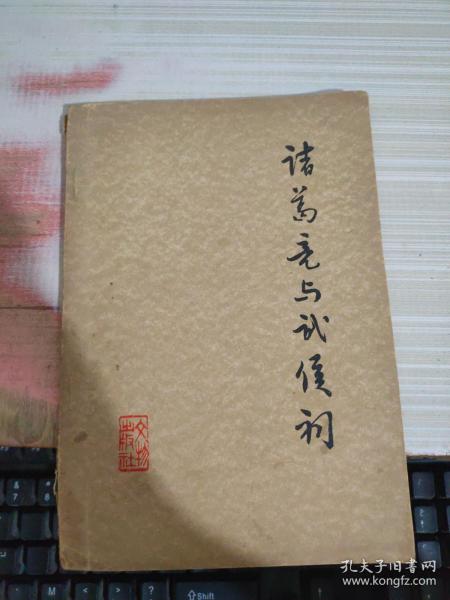 诸葛亮与武侯祠
文物
出版社
Shift
M
N
B
孔夫子旧书网
www.kongfz.com